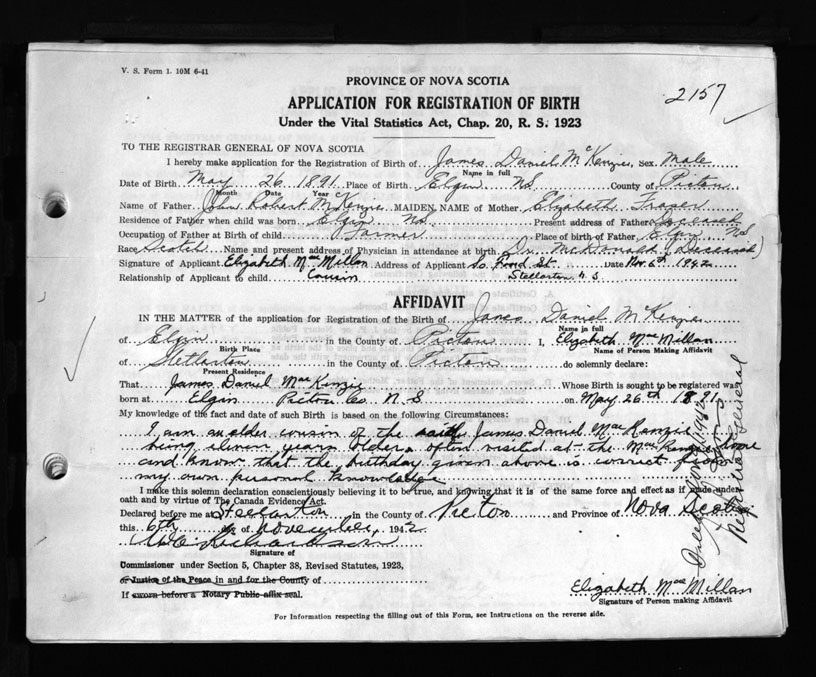 V. S. Form 1. 10M 6-41
PROVINCE OF NOVA SCOTIA
2157
APPLICATION FOR REGISTRATION OF BIRTH
Under the Vital Statistics Act, Chap. 20, R. S. 1923
TO THE REGISTRAR GENERAL OF NOVA SCOTIA
I hereby make application for the Registration of Birth of James Daniel McKenzie, sex Male
Name in full
Date of Birth May 26 1891 Place of Birth Elgin NS County of Pictou
Month Date Year
Name of Father John Robert McKenzie MAIDEN NAME of Mother Elizabeth Fraser
Residence of Father when child was born Elgin NS Present address of Father Deceased
Occupation of Father at Birth of child Farmer Place of birth of Father Elgin NS
Race Scotch Name and present address of Physician in attendance at birth Dr. McDonald (Deceased)
Signature of Applicant Elizabeth MacMillan Address of Applicant So. Foord St. Date Nov. 6th 1942
Relationship of Applicant to child Cousin Stellarton N S
AFFIDAVIT
IN THE MATTER of the application for Registration of the Birth of James Daniel McKenzie
Name in full
of Elgin in the County of Pictou I, Elizabeth MacMillan
Birth Place Name of Person Making Affidavit
of Stellarton in the County of Pictou do solemnly declare:
Present Residence
That James Daniel MacKenzie Whose Birth is sought to be registered was
born at Elgin Pictou Co. N. S on May 26th 1891
My knowledge of the fact and date of such Birth is based on the following Circumstances:
I am an elder cousin of the James Daniel MacKenzie
being eleven years older, often visited at the MacKenzie home
and know that the birthday given above is correct from
my own personal knowledge
I make this solemn declaration conscientiously believing it to be true, and knowing that it is of the same force and effect as if made under
oath and by virtue of The Canada Evidence Act.
Declared before me at Stellarton in the County of Pictou and Province of Nova Scotia
this 6th day of November, 1942
Richardson
Signature of
Commissioner under Section 5, Chapter 38, Revised Statutes, 1923,
or Justice of the Peace in and for the County of
If sworn before a Notary Public affix seal.
Elizabeth MacMillan
Signature of Person making Affidavit
For Information respecting the filling out of this Form, see Instructions on the reverse side.
Registrar General